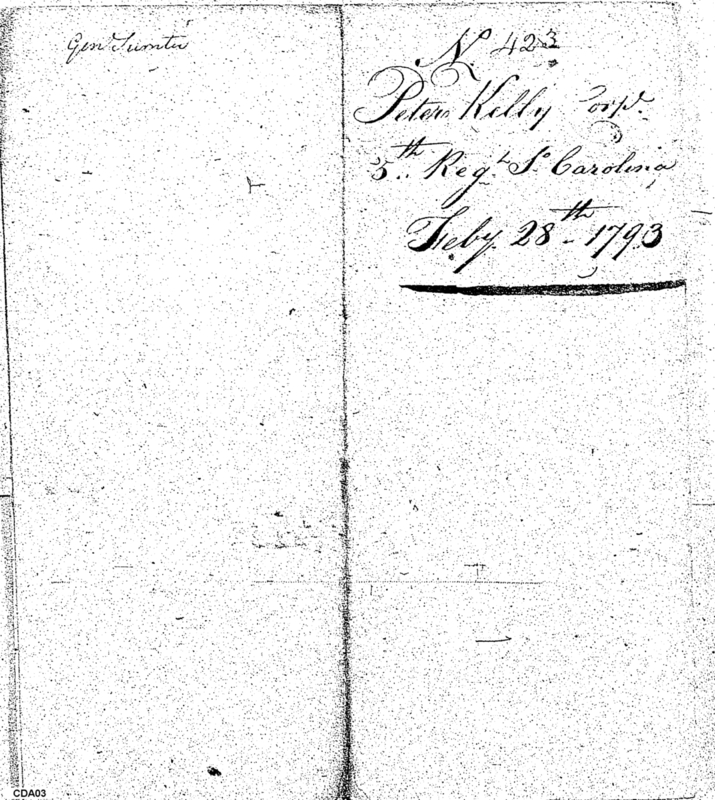 Genl Sumter
No 423
Peter Kelly Corpl.
5th Regt. So Carolina
Feby. 28th - 1793
CDA03